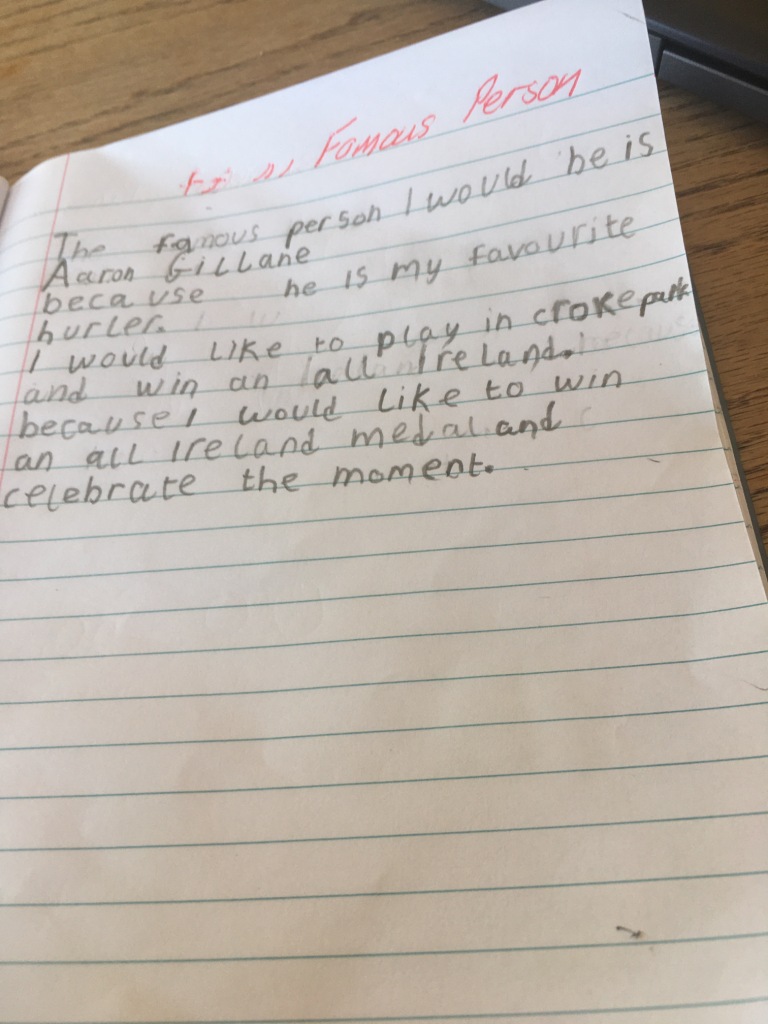 Famous Person
The famous person I would be is
Aaron Gillane
because he is my favourite
hurler.
I would like to play in croke park
and win an all Ireland.
because I would like to win
an all Ireland medal and
celebrate the moment.